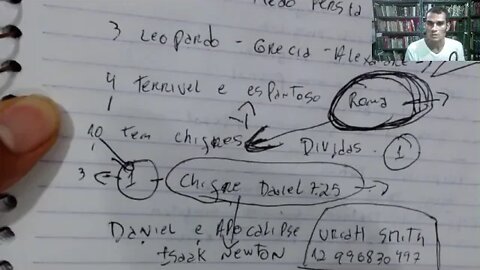 Medo Persia
3 Leopardo - Grecia - Alexan
4 terrivel e espantoso Roma
1
10 tem chifres Dividas. 1
1
3 1 Chifre Daniel 7.25
Daniel e Apocalipse Uriah Smith
Isaak Newton 12 996830497